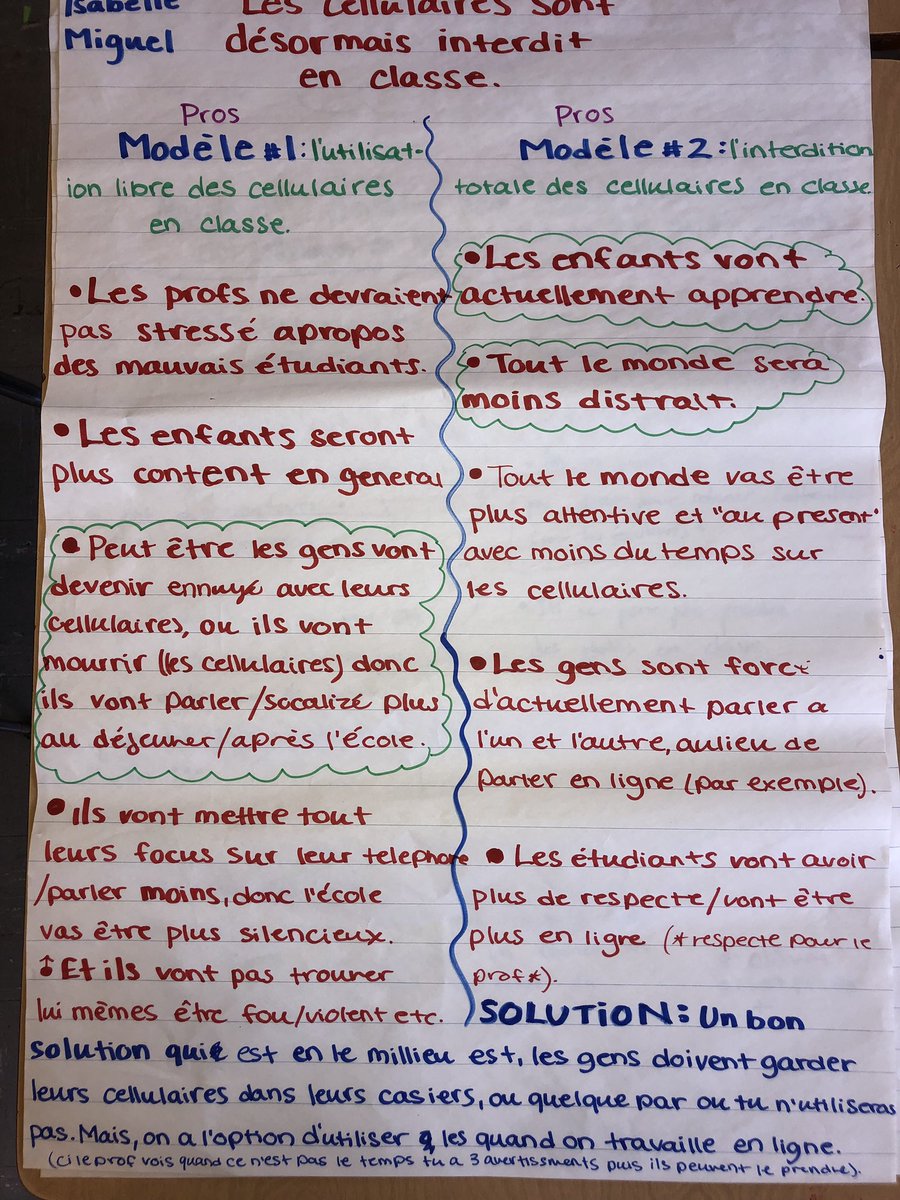 Isabelle
Miguel
Les cellulaires sont
désormais interdit
en classe.
Pros
Modèle #1: l'utilisat-
ion libre des cellulaires
en classe.
• Les profs ne devraient
pas stressé apropos
des mauvais étudiants.
• Les enfants seront
plus content en general
• Peut être les gens vont
devenir ennuyé avec leurs
cellulaires, ou ils vont
mourrir (les cellulaires) donc
ils vont parler/socalizé plus
au déjeuner/après l'école.
• Ils vont mettre tout
leurs focus sur leur telephone
/parler moins, donc l'école
vas être plus silencieux.
↕ Et ils vont pas trouner
lui mèmes être fou/violent etc.
Pros
Modèle #2: l'interdition
totale des cellulaires en classe
• Les enfants vont
actuellement apprendre.
• Tout le monde sera
moins distrait.
• Tout le monde vas être
plus attentive et "au present"
avec moins du temps sur
les cellulaires.
• Les gens sont forcé
d'actuellement parler a
l'un et l'autre, aulieu de
parler en ligne (par exemple).
• Les étudiants vont avoir
plus de respecte/vont être
plus en ligre (*respecte pour le
prof*).
SOLUTION: Un bon
solution qui est en le millieu est, les gens doivent garder
leurs cellulaires dans leurs casiers, ou quelque par ou tu n'utiliseras
pas. Mais, on a l'option d'utiliser les quand on travaille en ligne.
(ci le prof vois quand ce n'est pas le temps tu a 3 avertissments puis ils peuvent le prendre).